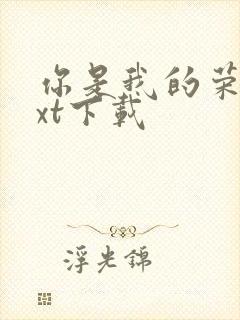 你是我的荣
xt下载
浮光锦